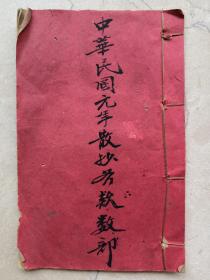 中華民國元年散抄各款数部